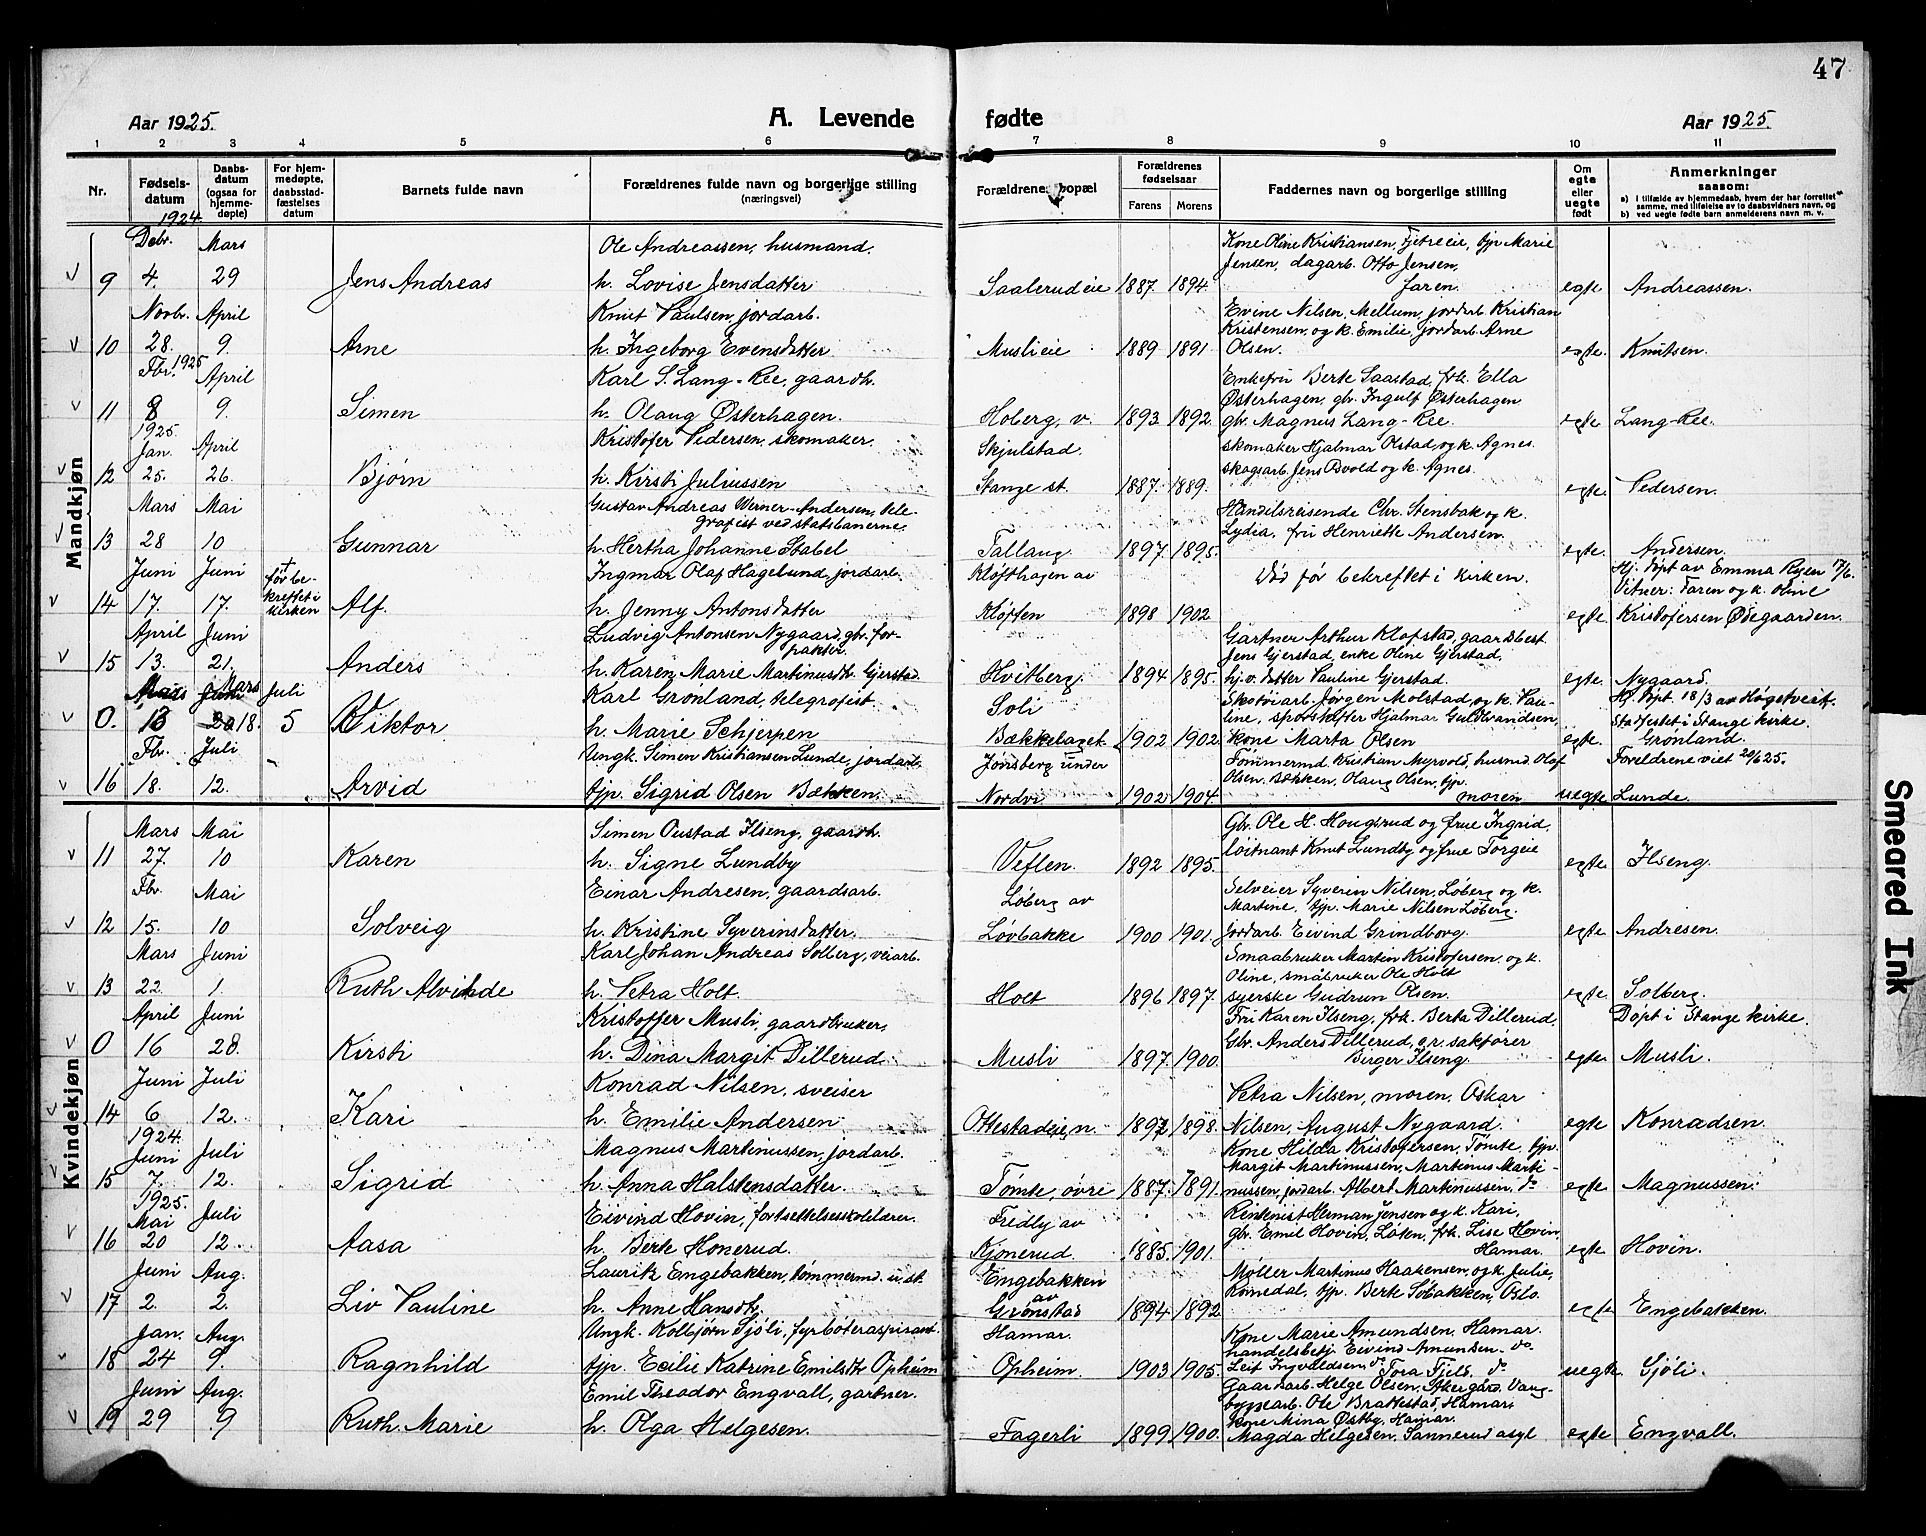 47
Aar 1925.
A. Levende fødte
Aar 1925.
1 2 3 4 5 6 7 8 9 10 11
Nr.
Fødsels-
datum
Daabs-
datum
(ogsaa for
hjemme-
døpte)
For hjem-
medøpte,
daabsstad-
fæstelses
datum
Barnets fulde navn
Forældrenes fulde navn og borgerlige stilling
(næringsvei)
Forældrenes bopæl
Forældrenes
fødselsaar
Farens Morens
Faddernes navn og borgerlige stilling
Om
egte
eller
uegte
født
Anmerkninger
saasom:
a) i tilfælde av hjemmedaab, hvem der har forrettet
samme, med tilføielse av to daabsvidners navn, og
b) ved uegte fødte barn anmelderens navn m. v.
Mandkjøn
1924
Debr. Mars Ole Andreassen, husmand. Kone Oline Kristiansen, Fjetreeie, typ Marie
Jensen, dagarb. Otto Jensen,
9 4. 29 Jens Andreas h. Lovise Jensdatter Saalerudeie 1887 1894. Jaren. egte Andreassen.
Novbr. April Knut Paulsen, jordarb. Evine Nilsen, Mellum, jordarb Kristian
Kristensen, og k. Emilie, jordarb Arne
10 28. 9. Arne h. Ingeborg Evensdatter Muslieie 1889 1891 Olsen. egte. Knutsen.
Fbr. 1925 April Karl S. Lang-Ree, gaardbr. Enkefru Berte Saastad, frk. Ella
Østerhagen, gbr. Ingulf Østerhagen
11 8 9. Simen h. Olaug Østerhagen. Hoberg, v. 1893 1892. gbr. Magnus Lang-Ree. egte Lang-Ree.
1925.
Jan. April Kristofer Pedersen, skomaker. Skjulstad. skomaker Hjalmar Olstad og k. Agnes.
skogsarb. Jens Bvold og k. Agnes.
12 25. 26. Bjørn h. Kirsti Juliussen Stange st. 1887. 1889. egte. Pedersen.
Mars Mai Gustav Andreas Werner-Andersen, tele-
grafist ved statsbanerne. Handelsreisende Chr. Stensbak og k.
Lydia, fru Henriette Andersen.
13 28 10 Gunnar h. Hertha Johanne Stabel Tallang 1897. 1895. egte. Andersen.
Juni Juni † før be-
kreftet i
kirken Ingmar Olaf Hagelund, jordarb. Kløfthagen av Død før bekreftet i kirken. Hj. døpt av Emma Ryen 17/6.
Vitner: Faren og k. Oline
14 17. 17. Alf. h. Jenny Antonsdatter Kløften 1898 1902 egte. Kristofersen Ødegaarden.
April Juni Ludvig Antonsen Nygaard, gbr. for-
pakter. Gartner Arthur Klofstad, gaardbest.
Jens Gjerstad, enke Oline Gjerstad,
15 13. 21. Anders h. Karen Marie Martinusdtr. Gjerstad Hvitberg 1894 1895. hj.v. datter Pauline Gjerstad. egte. Nygaard.
Mars Mars Juli Karl Grønland, telegrafist Soli Skotøiarb. Jørgen Molstad og k. Pau-
line, sporskifter Hjalmar Guldbrandsen, Hj. døpt 18/3 av Hagetveit.
Stadfestet i Stange kirke.
0. 13 18. 5 Viktor h. Marie Schjerpen Bækkelaget. 1902 1902. kone Marta Olsen egte. Grønland.
Fbr. Juli Ungk. Simen Kristiansen Lunde, jordarb. Jønsberg under Tømmermd. Kristian Myrvold, husmd. Olaf
Olsen, Bækken, Olaug Olsen, typ. Foreldrene viet 20/6 25.
16 18. 12. Arvid typ. Sigrid Olsen Bækken. Nordvi 1902 1904. moren uegte Lunde.
Kvindekjøn
Mars Mai Simen Oustad Ilseng, gaardbr. Gbr. Ole H. Hougsrud og frue Ingrid,
løitnant Knut Lundby og frue Torgeie
11 27. 10 Karen h. Signe Lundby Veflen. 1892 1895. egte Ilseng.
Fbr. Mai Einar Andresen, gaardsarb. Løberg av Selveier Syverin Nilsen, Løberg og k.
Martine, typ. Marie Nilsen Løberg.
12 15. 10 Solveig h. Kristine Syverinsdatter. Løvbakke 1900 1901. Jordarb. Eivind Grindborg. egte Andresen.
Mars Juni Karl Johan Andreas Solberg, veiarb. Smaabruker Martin Kristofersen, og k.
Oline, småbruker Ole Holt
13 22. 1. Ruth Alvilde h. Petra Holt. Holt 1896 1897. syerske Gudrun Olsen. egte Solberg.
April Juni Kristoffer Musli, gaardbruker, Fru Karen Ilseng, frk. Berta Dillerud, Døpt i Stange kirke.
Gbr. Anders Dillerud, o.r. sakfører
0 16 28. Kirsti h. Dina Margit Dillerud. Musli 1897. 1900. Birger Ilseng egte Musli.
Juni Juli Konrad Nilsen, sveiser Petra Nilsen, moren, Oskar
14 6 12. Kari h. Emilie Andersen Ottestadeie, n. 1897 1898. Nilsen, August Nygaard. egte Konradsen.
1924.
Juni Juli Magnus Martinussen, jordarb. Kone Hilda Kristofersen, Tømte, typ.
Margit Martinussen, Martinus Marti-
15 7. 12. Sigrid h. Anna Halstensdatter. Tømte, øvre 1887. 1891. nussen, jordarb. Albert Martinussen, do egte Magnussen.
1925.
Mai Juli Eivind Hovin, fortsettelsesskolelærer. Fredly av Rentenist Herman Jensen og k. Kari,
gbr. Emil Hovin, Løken, frk. Lise Hovin,
16 20 12. Aasa h. Berte Honerud. Kjonerud. 1885. 1901. Hamar. egte Hovin.
Juni Aug. Lauritz Engebakken, tømmermd. u. st. Engebakken
av Møller Martinus Haakensen, og k. Julie,
Romedal, typ. Berte Søbakken, Oslo.
17 2. 2. Liv Pauline h. Anne Hansdtr. Grønstad 1894 1892 egte Engebakken.
Jan. Aug. Ungk. Kolbjørn Sjøli, fyrbøteraspirant. Hamar. Kone Marie Amundsen, Hamar.
handelsbetj. Eivind Amundsen, do
18 24 9. Ragnhild typ. Ecilie Katrine Emilsdtr Opheim Opheim 1903 1905. Leif Ingvaldsen, do Tora Fjeld, do uegte Sjøli.
Juni Aug. Emil Theodor Engvall, gartner. Gaardsarb. Helge Olsen, Akergård, Vang.
byggearb. Ole Brattestad, Hamar,
kone Mina Østby, Hamar.
19 29 9 Ruth Marie h. Olga Helgesen. Fagerli 1899 1900. Magda Helgesen, Sannerud asyl egte Engvall.
Smeared Ink